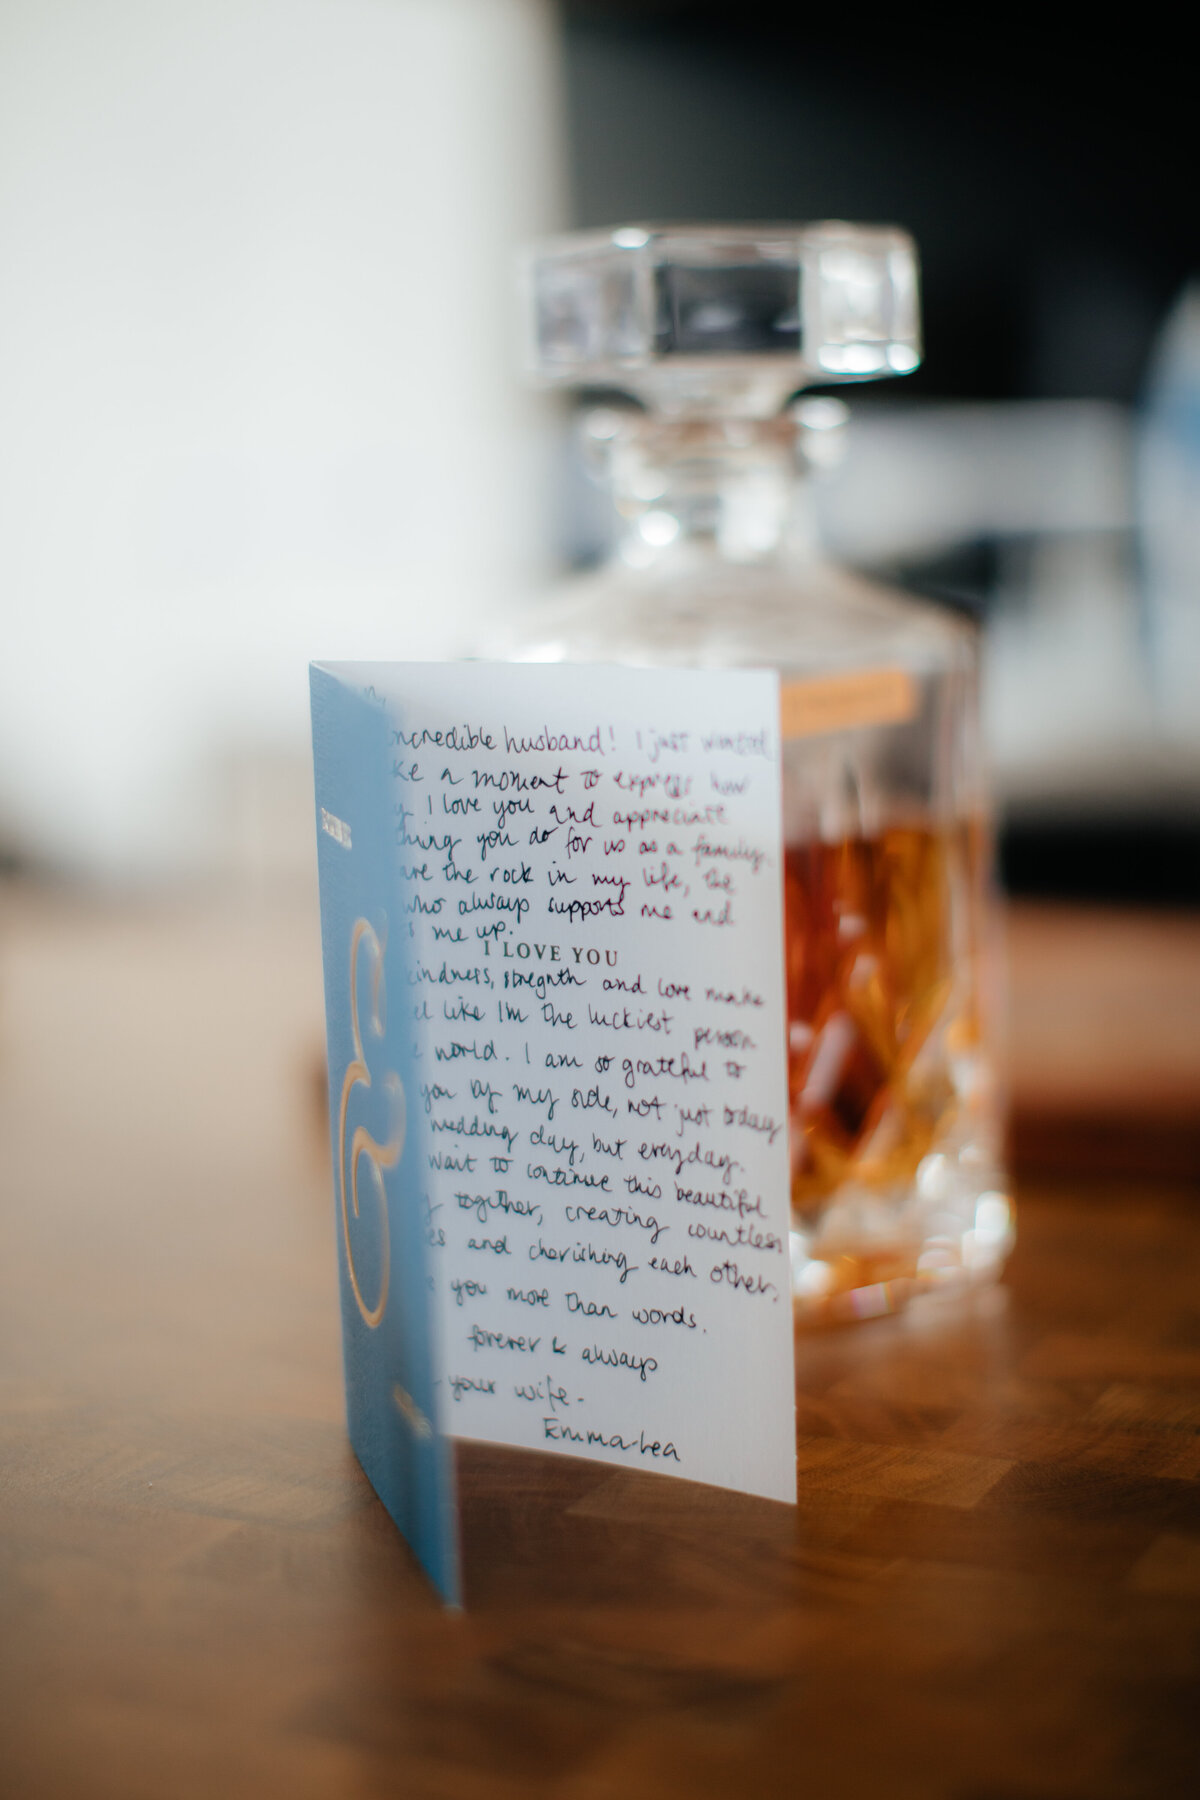 ncredible husband! I just wanted
ke a moment to express how
y I love you and appreciate
thing you do for us as a family.
are the rock in my life, the
who always supports me and
s me up.
I LOVE YOU
kindness, stregnth and love make
el like I'm the luckiest person
e world. I am so grateful to
you by my side, not just today
wedding day, but everyday.
wait to continue this beautiful
y together, creating countless
es and cherishing each other,
e you more than words.
forever & always
- your wife -
Emma-Lea
&